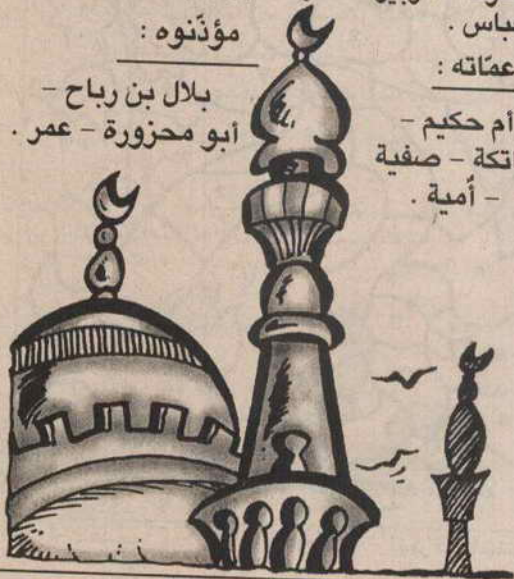 باس .
عمّاته :
أم حكيم –
تكة – صفية
– أمية .
مؤذّنوه :
بلال بن رباح –
أبو محزورة – عمر .